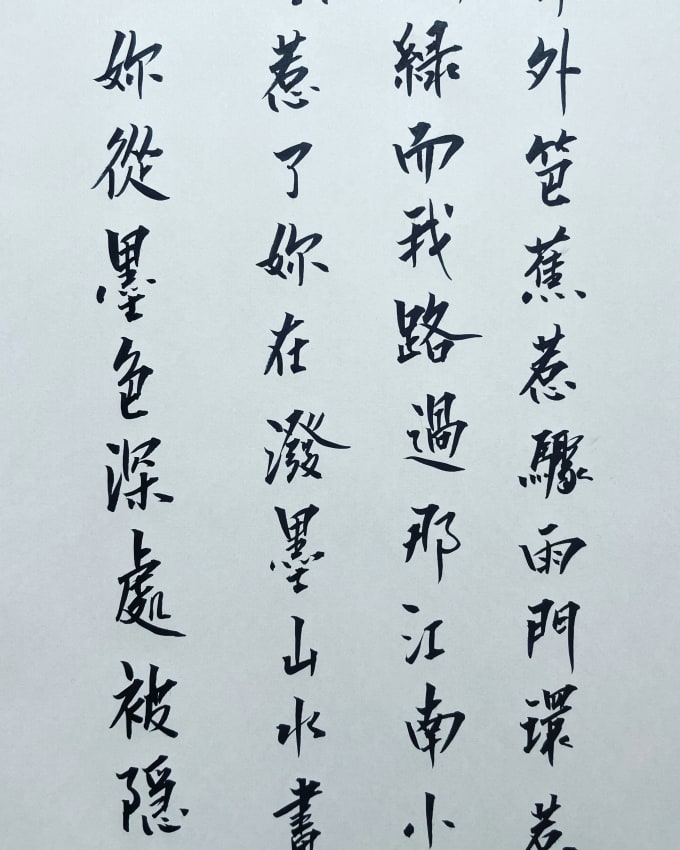 外笆蕉惹驟雨門環惹
綠而我路過那江南小
惹了妳在潑墨山水畫
妳從墨色深處被隱